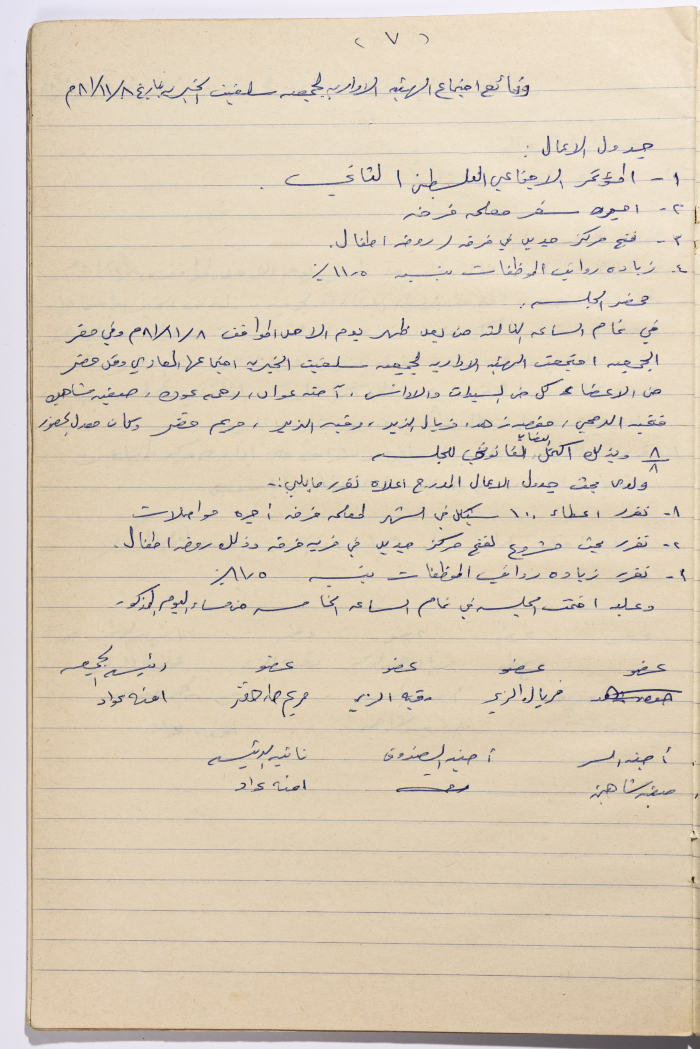 (٧)
وقائع اجتماع الهيئه الاداريه لجمعيه سلفيت الخيريه بتاريخ ٨١/١١/٨م
جدول الاعمال :
١- المؤتمر الاجتماعي الفلسطيني الثاني .
٢- اجره سفر معلمه فرخه
٣- فتح مركز جديد في فرخه / روضه اطفال .
٤- زياده رواتب الموظفات بنسبه ١١٫٥٪
حضر الجلسه :
في تمام الساعه الثالثه من بعد ظهر يوم الاحد الموافق ٨١/١١/٨م وفي مقر
الجمعيه اجتمعت الهيئه الاداريه لجمعيه سلفيت الخيريه اجتماعها العادي وقد حضر
من الاعضاء كل من السيدات والاوانس ، آمنه عواد ، رحمه عوده ، صفيه شاهين
، حفصه زهد ، فريال الزير ، رقيه الزير ، مريم خضر وكان معدل الحضور
٨/٨ وبذلك اكتمل النصاب القانوني للجلسه
ولدى بحث جدول الاعمال المدرج اعلاه تقرر مايلي :-
١- تقرر اعطاء ١٠٠ شيكل في الشهر لمعلمه فرخه أجره مواصلات
٢- تقرر بحث مشروع لفتح مركز جديد في قريه فرخه وذلك روضه اطفال .
٣- تقرر زياده رواتب الموظفات بنسبه ١١٫٥٪
وعليه اختتمت الجلسه في تمام الساعه الخامسه من مساء اليوم المذكور .
عضو عضو عضو عضو رئيسه الجمعيه
فريال الزير رقيه الزير مريم امنه عواد
أمينه السر أمينه الصندوق نائبه الرئيسه
صفيه شاهين امنه عواد